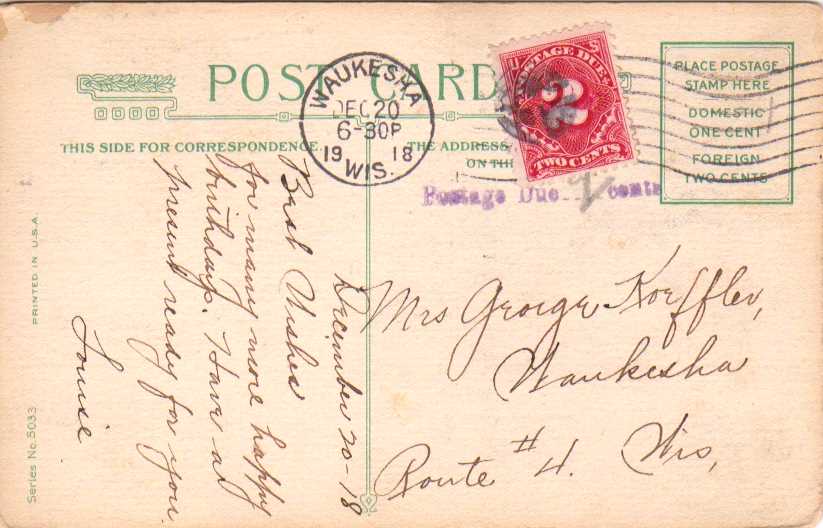 POST CARD
WAUKESHA
DEC 20
6-30P
19 18
WIS.
U S
POSTAGE DUE
2
TWO CENTS
PLACE POSTAGE
STAMP HERE
DOMESTIC
ONE CENT
FOREIGN
TWO CENTS
THIS SIDE FOR CORRESPONDENCE.
THE ADDRESS
ON THI
Postage Due 2 cents
December 20-18
Best Wishes
for many more happy
birthdays. Have a
present ready for you
Louise
Mrs George Koeffler,
Waukesha
Route #4. Wis,
PRINTED IN U.S.A.
Series No. 5033